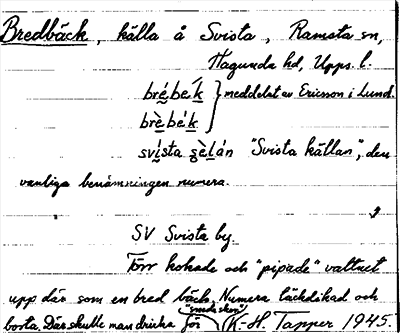 Bredbäck, källa å Svista, Ramsta sn,
Hagunda hd, Upps. l.
brébék } meddelat av Ericson i Lund.
brèbék
svísta sèlán "Svista källan", den
vanliga benämningen numera.
SV Svista by.
Förr kokade och "pipade" vattnet
upp där som en bred bäck. Numera täckdikad och
borta. Där skulle man dricka för
K-H. Tapper 1945.